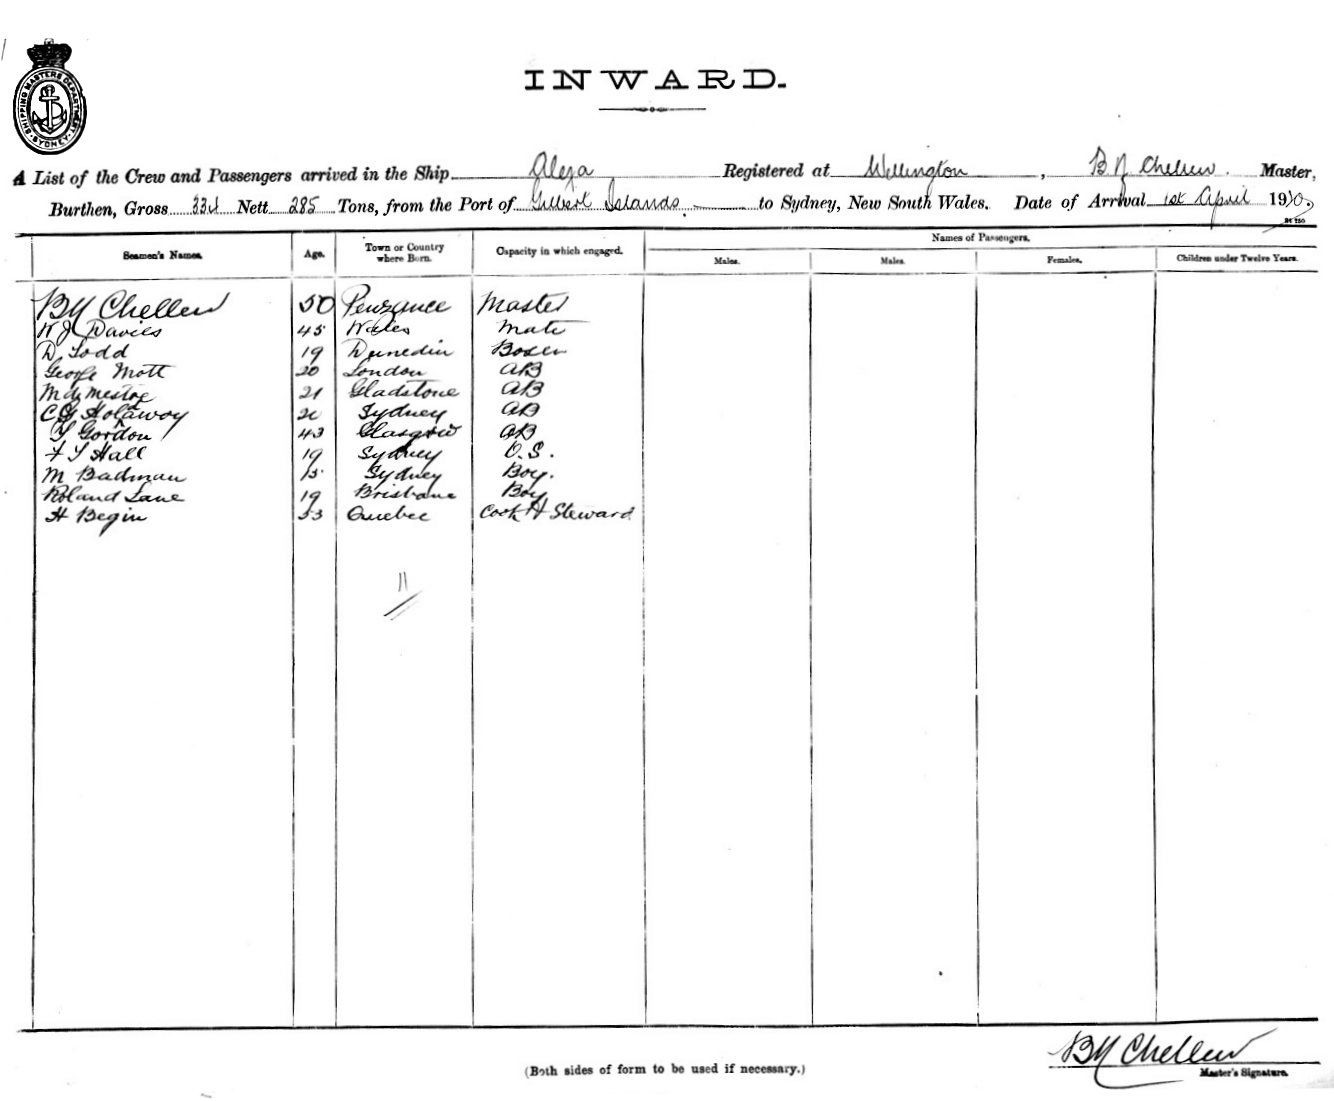 SHIPPING MASTERS DEPARTMENT SYDNEY
INWARD.
A List of the Crew and Passengers arrived in the Ship Alexa Registered at Wellington, B J Chellew. Master,
Burthen, Gross 334 Nett 285 Tons, from the Port of Gilbert Islands to Sydney, New South Wales. Date of Arrival 1st April 1910.
Names of Passengers.
Seamen's Names. Age. Town or Country where Born. Capacity in which engaged. Males. Males. Females. Children under Twelve Years.
Chellew 50 Penzance Master
W J Davies 45 Wales Mate
D Todd 19 Dunedin Bosen
George Mott 20 London AB
21 Gladstone AB
Holaway Sydney AB
Gordon 43 Glasgow AB
Hall 19 Sydney O.S.
M Badman 15 Sydney Boy.
Roland Lane 19 Brisbane Boy
H Begin 53 Quebec Cook & Steward
11
Chellew
Master's Signature.
(Both sides of form to be used if necessary.)